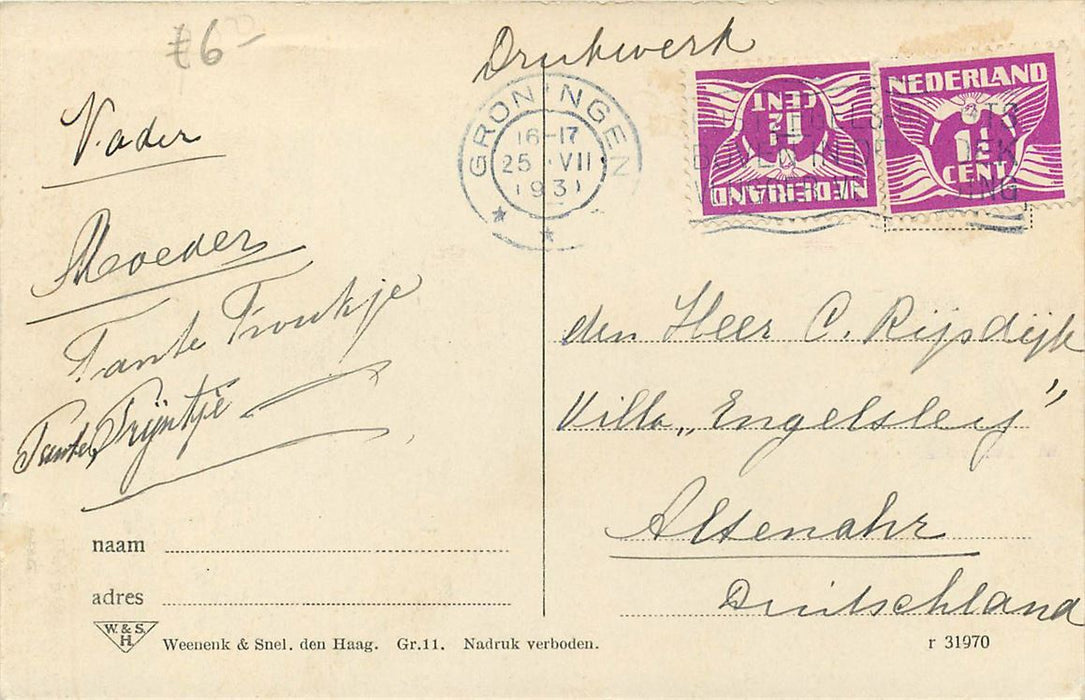 £6-
Drukwerk
Vader
Moeder
Tante Troukje
Tante Trijntje
GRONINGEN
16-17
25 VII
1931
1½ CENT
NEDERLAND
NEDERLAND
1½
CENT
den Heer C. Rijsdijk
Villa „Engelsley"
Altenahr
Duitschland
naam
adres
W. & S.
H.
Weenenk & Snel. den Haag. Gr.11. Nadruk verboden.
r 31970